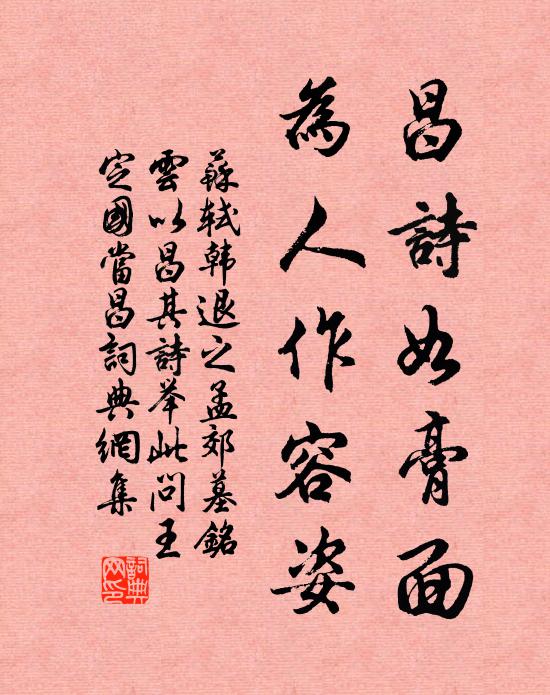 昌詩如膏面
為人作容姿
蘇軾韩退之孟郊墓銘
雲以昌其詩举此問王
定國當昌詞典網集
詞典
网印